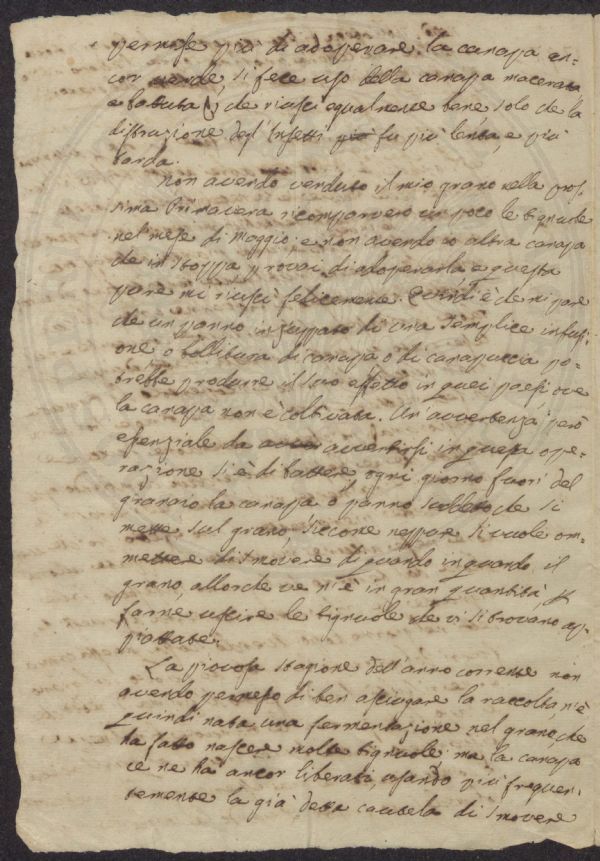 permesse più di adoperare la canapa an=
cor verde, si fece uso della canapa macerata
e battuta, che riuscì egualmente bene solo che la
distruzione degl'Insetti fu più lenta, e più
tarda.
Non avendo venduto il mio grano nella pros=
sima Primavera ricomparvero un poco le tignuole
nel mese di Maggio; e non avendo io altra canapa
che in stoppa provai di adoperarla e questa
pure mi riuscì felicemente. Quindi è che mi pare
che un panno inzuppato di una semplice infusi=
one o bollitura di canapa o di canapuccia po=
trebbe produrre il suo effetto in quei paesi ove
la canapa non è coltivata. Un'avvertenza però
essenziale da avvertirsi in questa ope=
razione si è di battere ogni giorno fuori del
granaio la canapa o panno suddetto che si
mette sul grano, siccome neppure si vuole om=
mettere di smovere di quando in quando il
grano, allorche ve n'è in gran quantità, p
farne uscire le tignuole che vi si trovano ap=
piattate.
La piovosa stagione dell'anno corrente non
avendo permesso di ben asciugare la raccolta, n'è
quindi nata una fermentazione nel grano, che
ha fatto nascere molte tignuole; ma la canapa
ce ne ha ancor liberati, usando più frequen=
temente la già detta cautela di smovere